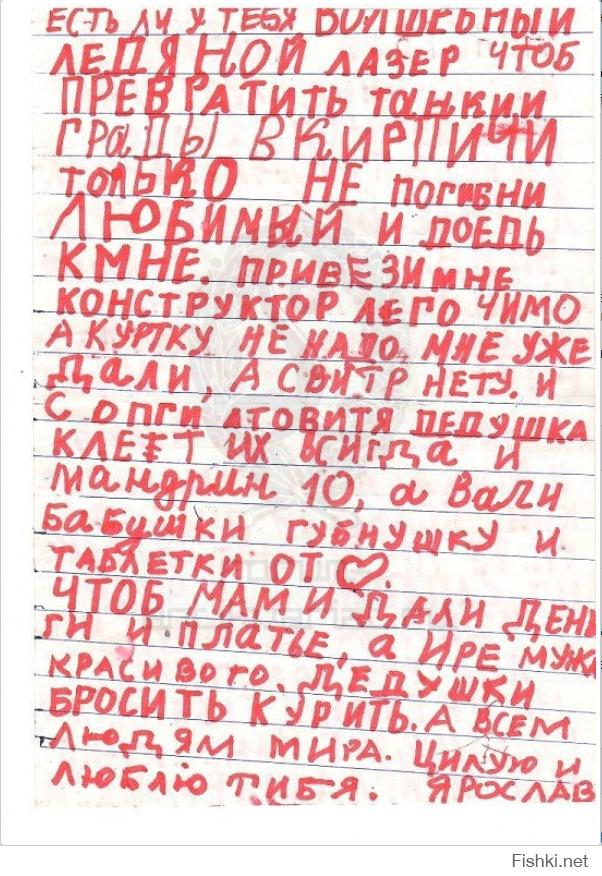 ЕСТЬ ЛИ У ТЕБЯ ВОЛШЕБНЫЙ
ЛЕДЯНОЙ ЛАЗЕР ЧТОБ
ПРЕВРАТИТЬ ТАНКИИ
ГРАДЫ В КИРПИЧИ
ТОЛЬКО НЕ ПОГИБНИ
ЛЮБИМЫЙ И ДОЕДЬ
КМНЕ. ПРИВЕЗИ МНЕ
КОНСТРУКТОР ЛЕГО ЧИМО
А КУРТКУ НЕ НАДО МНЕ УЖЕ
ДАЛИ, А СВИТР НЕТУ. И
САПГИ АТОВИТЯ ДЕДУШКА
КЛЕЕТ ИХ ВСИГДА И
МАНДРИН 10, А ВАЛИ
БАБУШКИ ГУБНУШКУ И
ТАБЛЕТКИ ОТ ♡.
ЧТОБ МАМИ ДАЛИ ДЕНЬ
ГИ И ПЛАТЬЕ, А ИРЕ МУЖА
КРАСИВОГО. ДЕДУШКИ
БРОСИТЬ КУРИТЬ. А ВСЕМ
ЛЮДЯМ МИРА. ЦИЛУЮ И
ЛЮБЛЮ ТИБЯ. ЯРОСЛАВ
Fishki.net